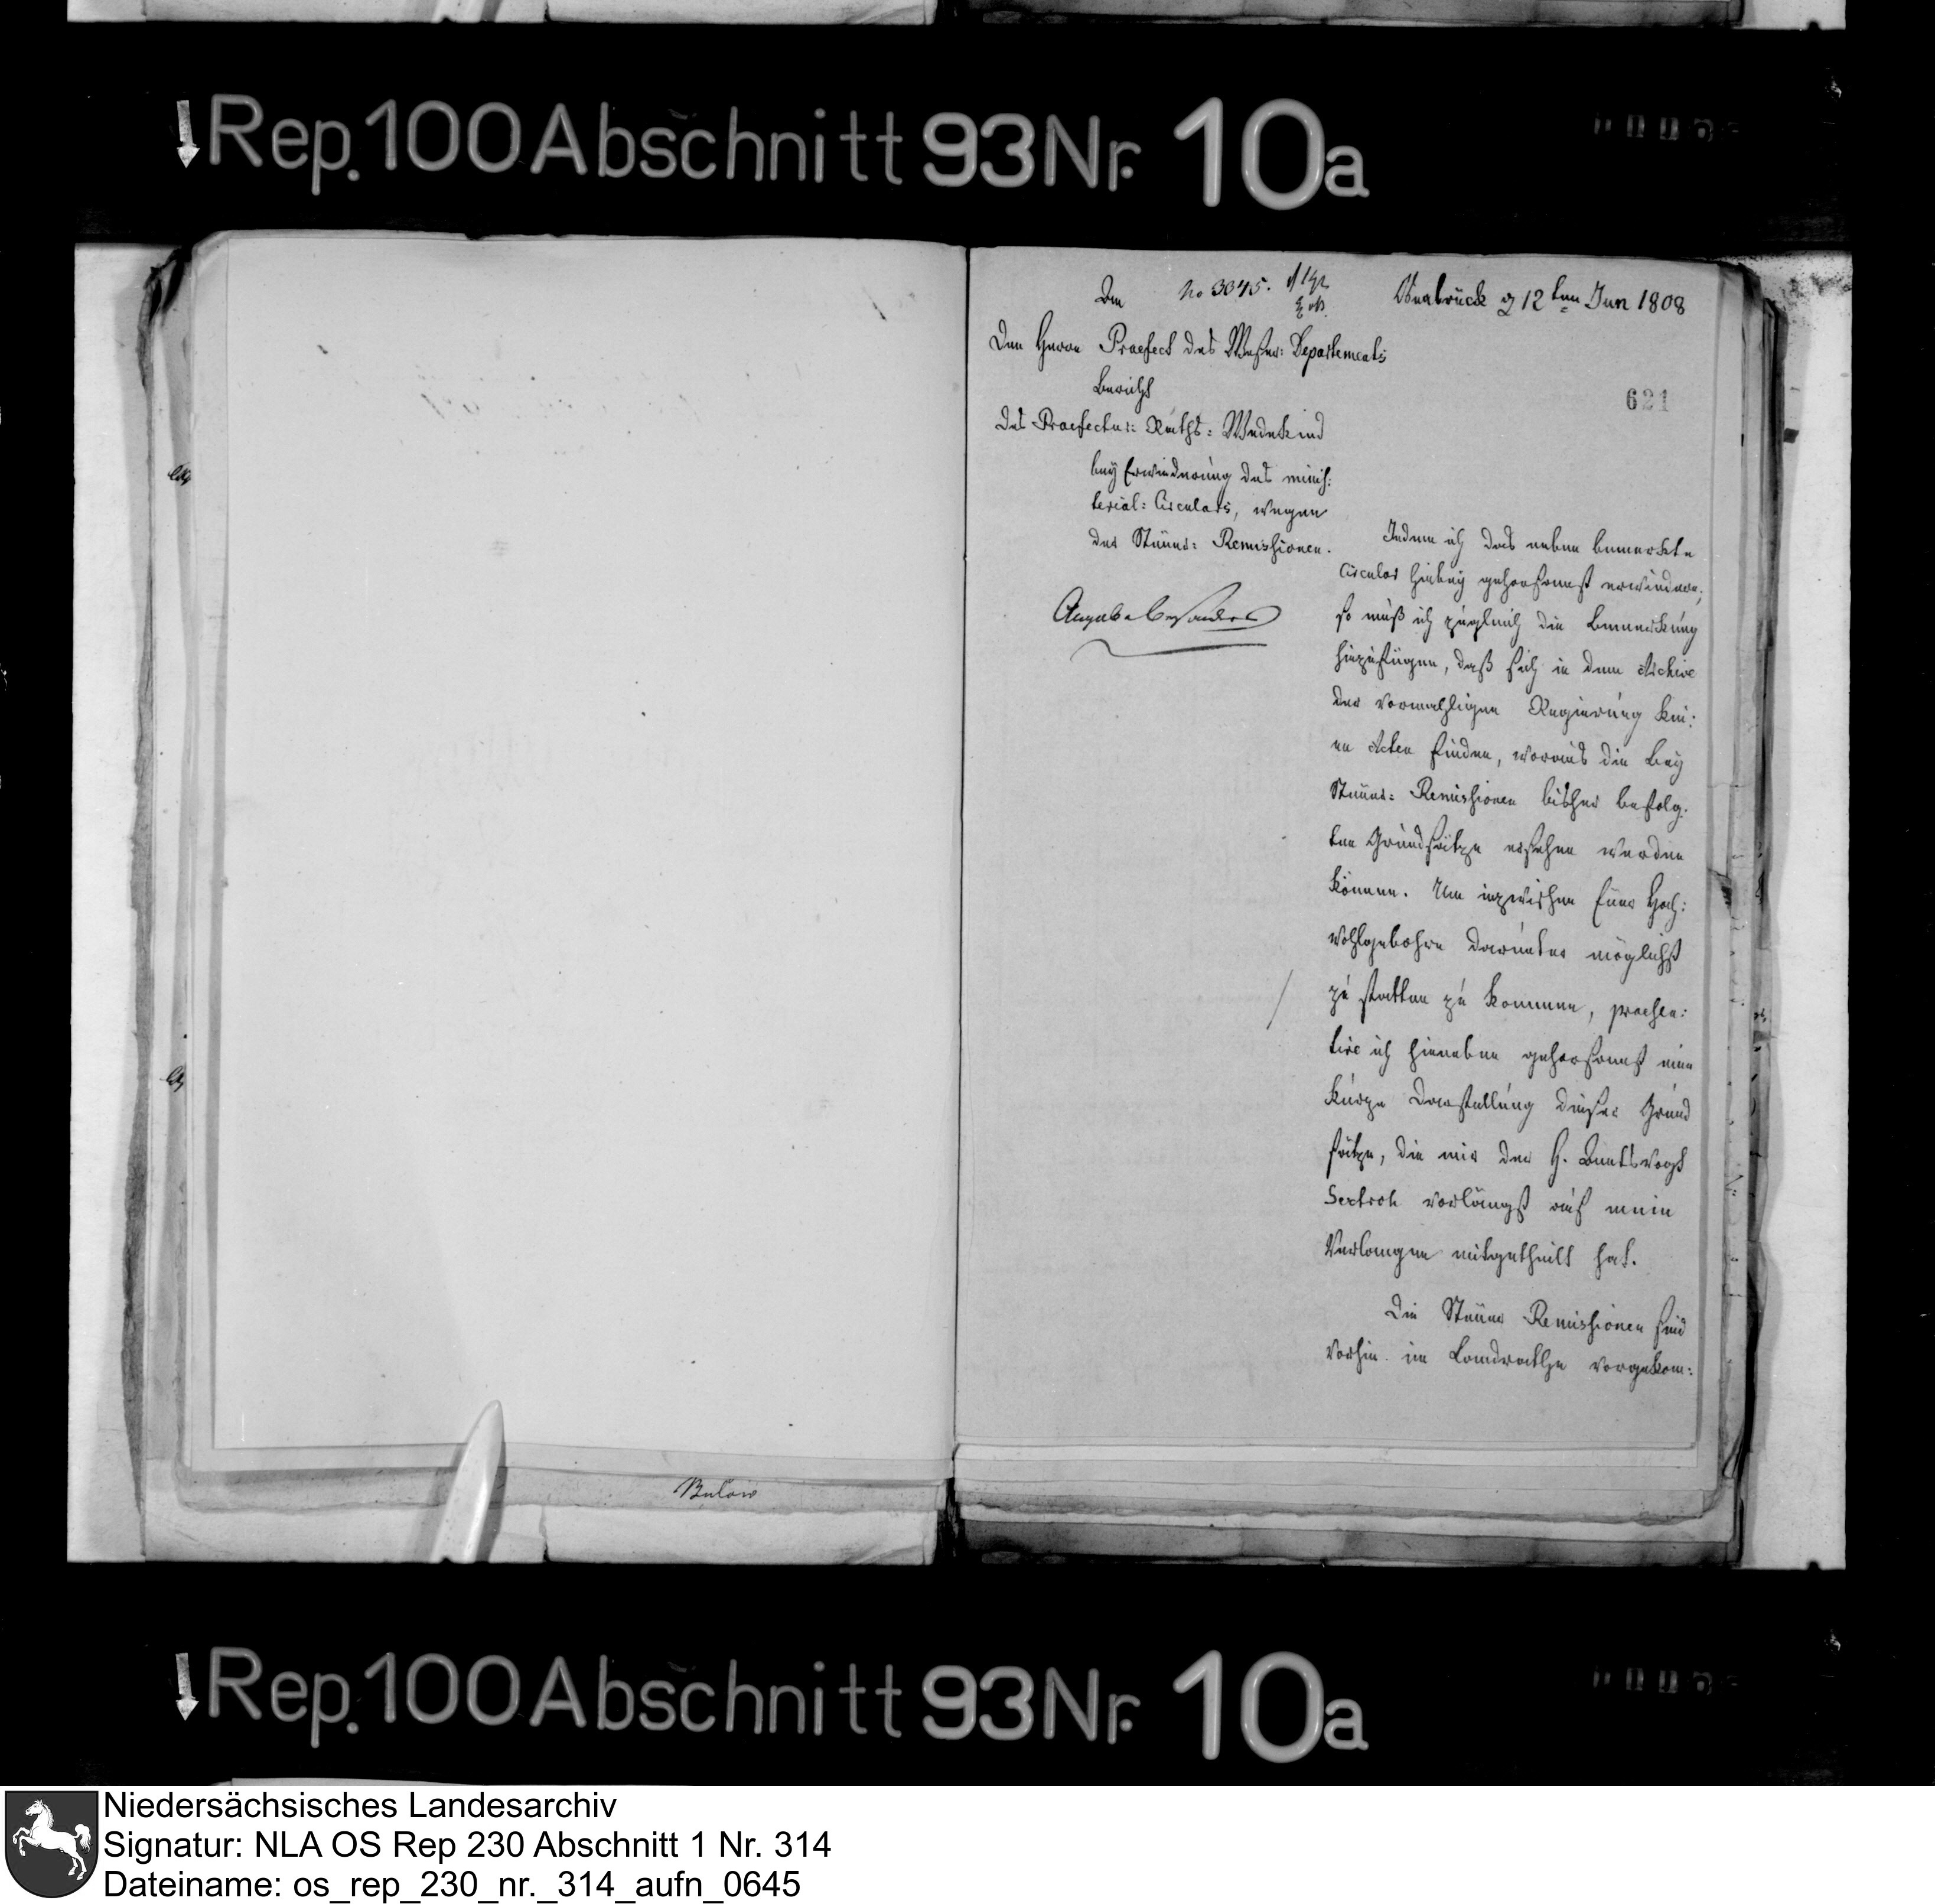 Rep. 100 Abschnitt 93 Nr. 10a
No 3045.
Osnabrück d 12ten Jun 1808
Den Herrn Praefect des Weser: Departements
Bericht
621
des Praefectur: Raths: Wedekind
bey Erwiederung des minis:
terial: Circulars, wegen
der Steuer: Remissionen.
Indem ich das neben bemerkte
Circular hiebey gehorsamst erwiedere,
so muß ich zugleich die Bemerkung
hinzufügen, daß sich in dem Archive
der vormahligen Regierung kei:
ne Acten finden, woraus die bey
Steuer: Remissionen bisher befolg:
ten Grundsätze ersehen werden
können. Um inzwischen Euer Hoch:
wohlgebohrn darunter möglichst
zu statten zu kommen, praesen:
tire ich hieneben gehorsamst eine
kurze Darstellung dieser Grund
sätze, die mir der H. Amtsvogt
Sextroh vorlängst auf mein
Verlangen mitgetheilt hat.
Die Steuer Remissionen sind
vorhin im Landrathe vorgekom:
Bülow
Rep. 100 Abschnitt 93 Nr. 10a
Niedersächsisches Landesarchiv
Signatur: NLA OS Rep 230 Abschnitt 1 Nr. 314
Dateiname: os_rep_230_nr._314_aufn_0645